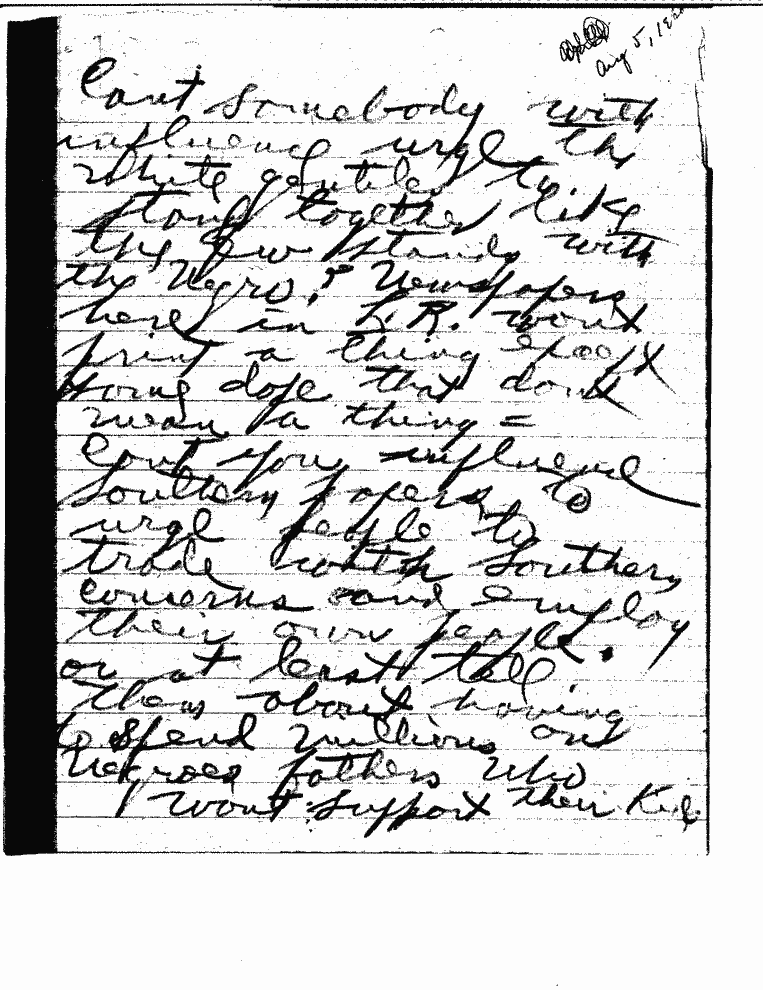 Aug 5, 19
Cant somebody with
influence urge the
white gentiles to
stand together like
the Jew stands with
the Negro? Newspapers
here in L.R. wont
print a thing except
some dope that dont
mean a thing =
Cant you influence
Southern papers to
urge people to
trade with Southern
concerns and employ
their own people.
or at least tell
them about having
to spend millions on
Negroes fathers who
wont support their Kids.